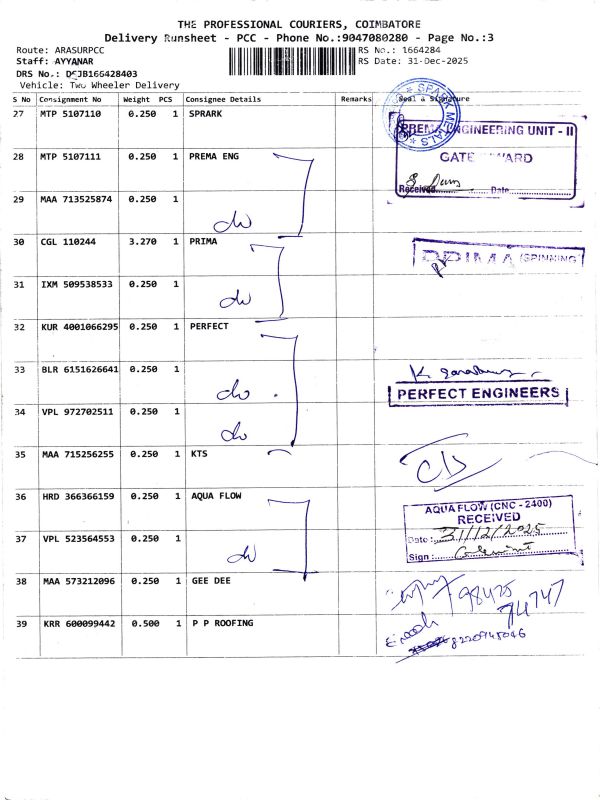 THE PROFESSIONAL COURIERS, COIMBATORE
Delivery Runsheet - PCC - Phone No.:9047080280 - Page No.:3
Route: ARASURPCC RS No.: 1664284
Staff: AYYANAR RS Date: 31-Dec-2025
DRS No.: DEJB166428403
Vehicle: Two Wheeler Delivery
S No Consignment No Weight PCS Consignee Details Remarks Seal & Signature
27 MTP 5107110 0.250 1 SPRARK
SPARK METALS
PREMA ENGINEERING UNIT - II
28 MTP 5107111 0.250 1 PREMA ENG
GATE INWARD
Received Date
29 MAA 713525874 0.250 1
do
30 CGL 110244 3.270 1 PRIMA
PRIMA (SPINNING
31 IXM 509538533 0.250 1
do
32 KUR 4001066295 0.250 1 PERFECT
33 BLR 6151626641 0.250 1
do
PERFECT ENGINEERS
34 VPL 972702511 0.250 1
do
35 MAA 715256255 0.250 1 KTS
36 HRD 366366159 0.250 1 AQUA FLOW
AQUA FLOW (CNC - 2400)
RECEIVED
Date : 31/12/2025
37 VPL 523564553 0.250 1
do
Sign :
38 MAA 573212096 0.250 1 GEE DEE
98425
74747
39 KRR 600099442 0.500 1 P P ROOFING
8220945046